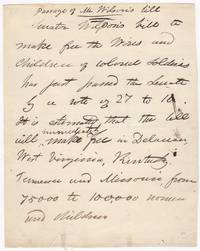 Passage of Mr Wilson's bill
Senator Wilson's bill to
make free the Wives and
Children of colored Soldiers
has just passed the Senate
by a vote of 27 to 10.
It is estimated that the bill
will immediately make free in Delaware,
West Virginia, Kentucky,
Tennessee and Missouri from
75000 to 100,000 women
and children